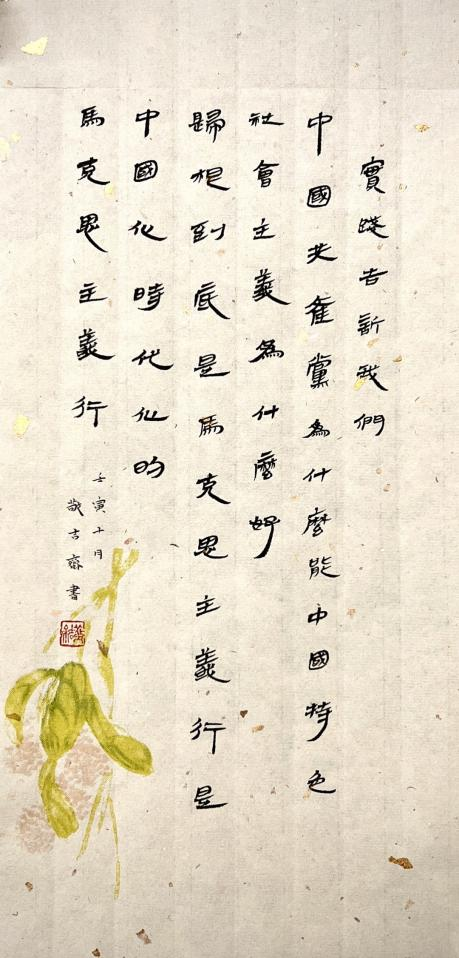 實踐告訴我們
中國共產黨為什麼能中國特色
社會主義為什麼好
歸根到底是馬克思主義行是
中國化時代化的
馬克思主義行
壬寅十月
敬古齋書